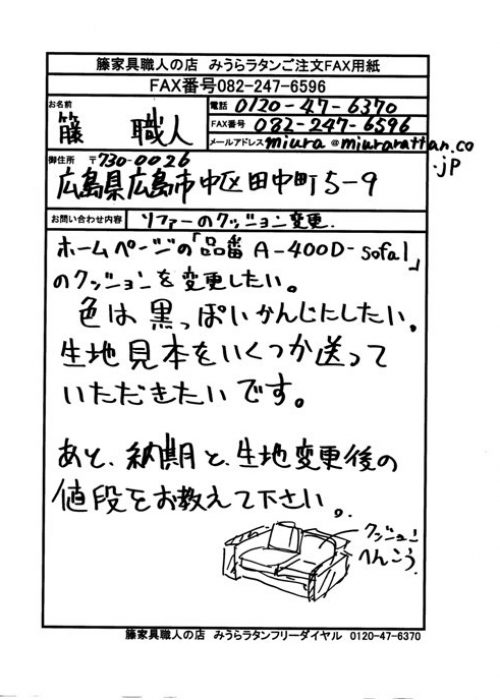 籐家具職人の店 みうらラタンご注文FAX用紙
FAX番号082-247-6596
お名前 籐 職人
電話 0120-47-6370
FAX番号 082-247-6596
メールアドレス miura@miurarattan.co.jp
御住所 〒730-0026
広島県広島市中区田中町5-9
お問い合わせ内容 ソファーのクッション変更.
ホームページの「品番 A-400D-sofa1」
のクッションを変更したい。
色は黒っぽいかんじにしたい。
生地見本をいくつか送って
いただきたいです。
あと、納期と、生地変更後の
値段をお教えて下さい。
クッション
へんこう
籐家具職人の店 みうらラタンフリーダイヤル 0120-47-6370